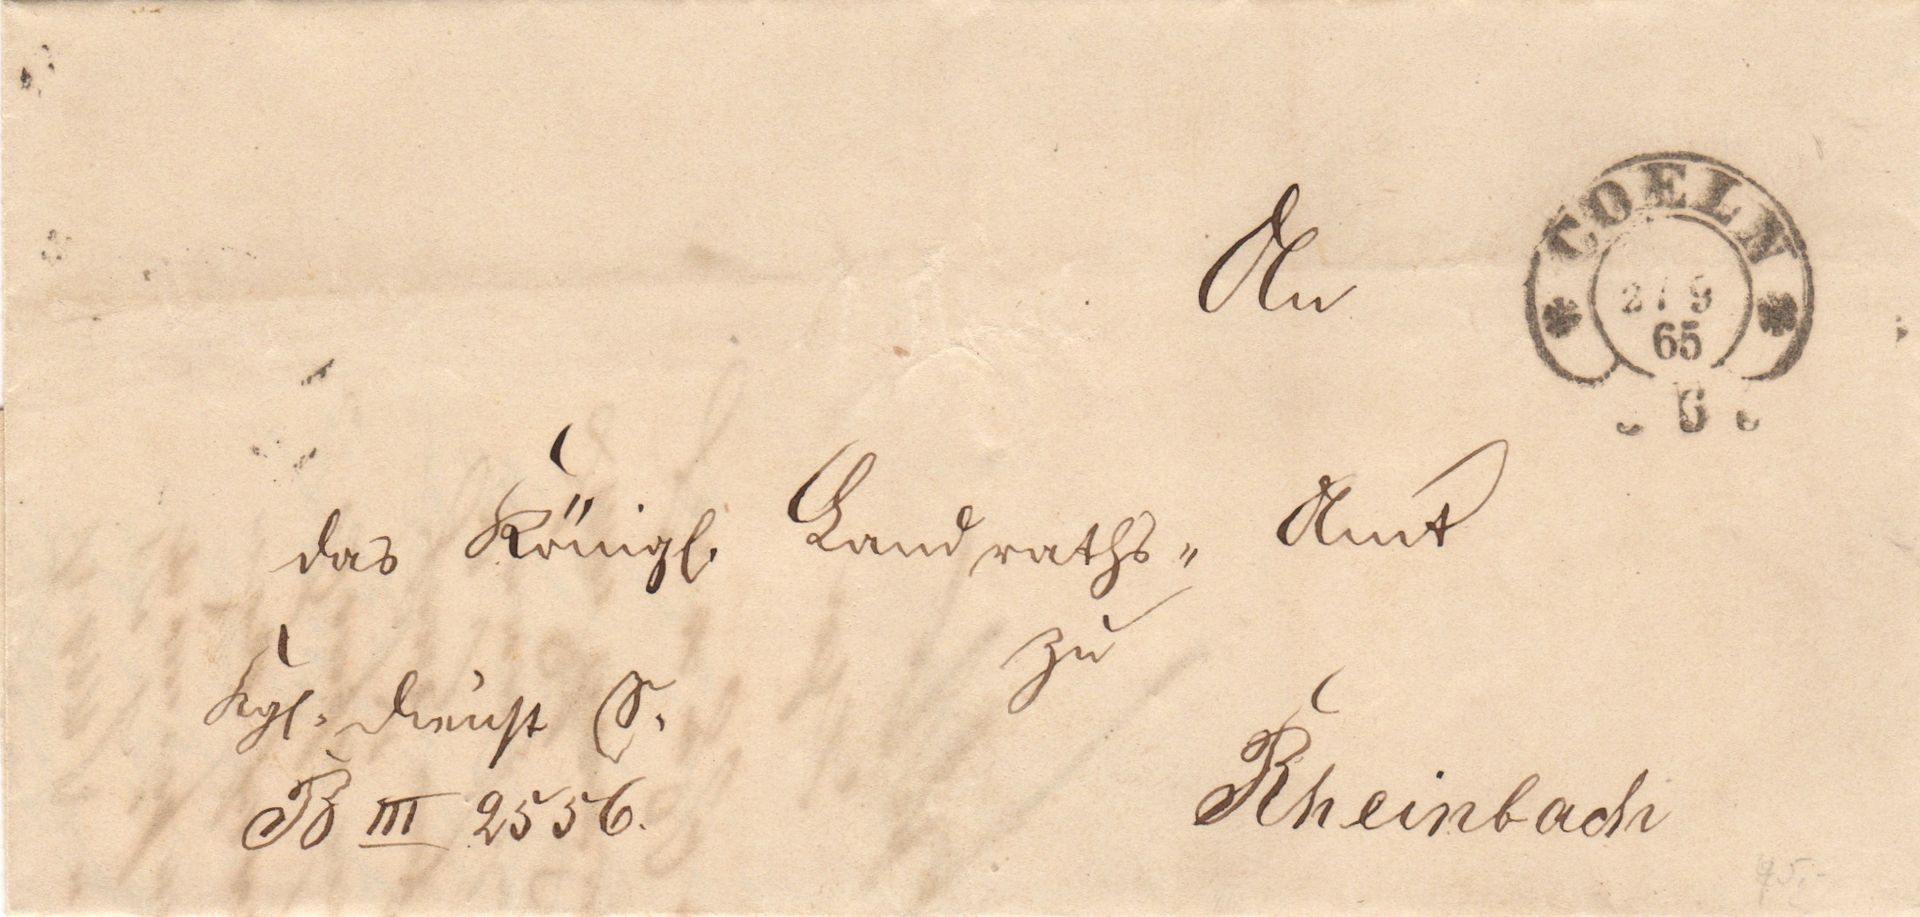 COELN
2 / 9
65
6
An
das Königl. Landraths= Amt
zu
Rheinbach
Kgl. Dienst S.
B III 2556.